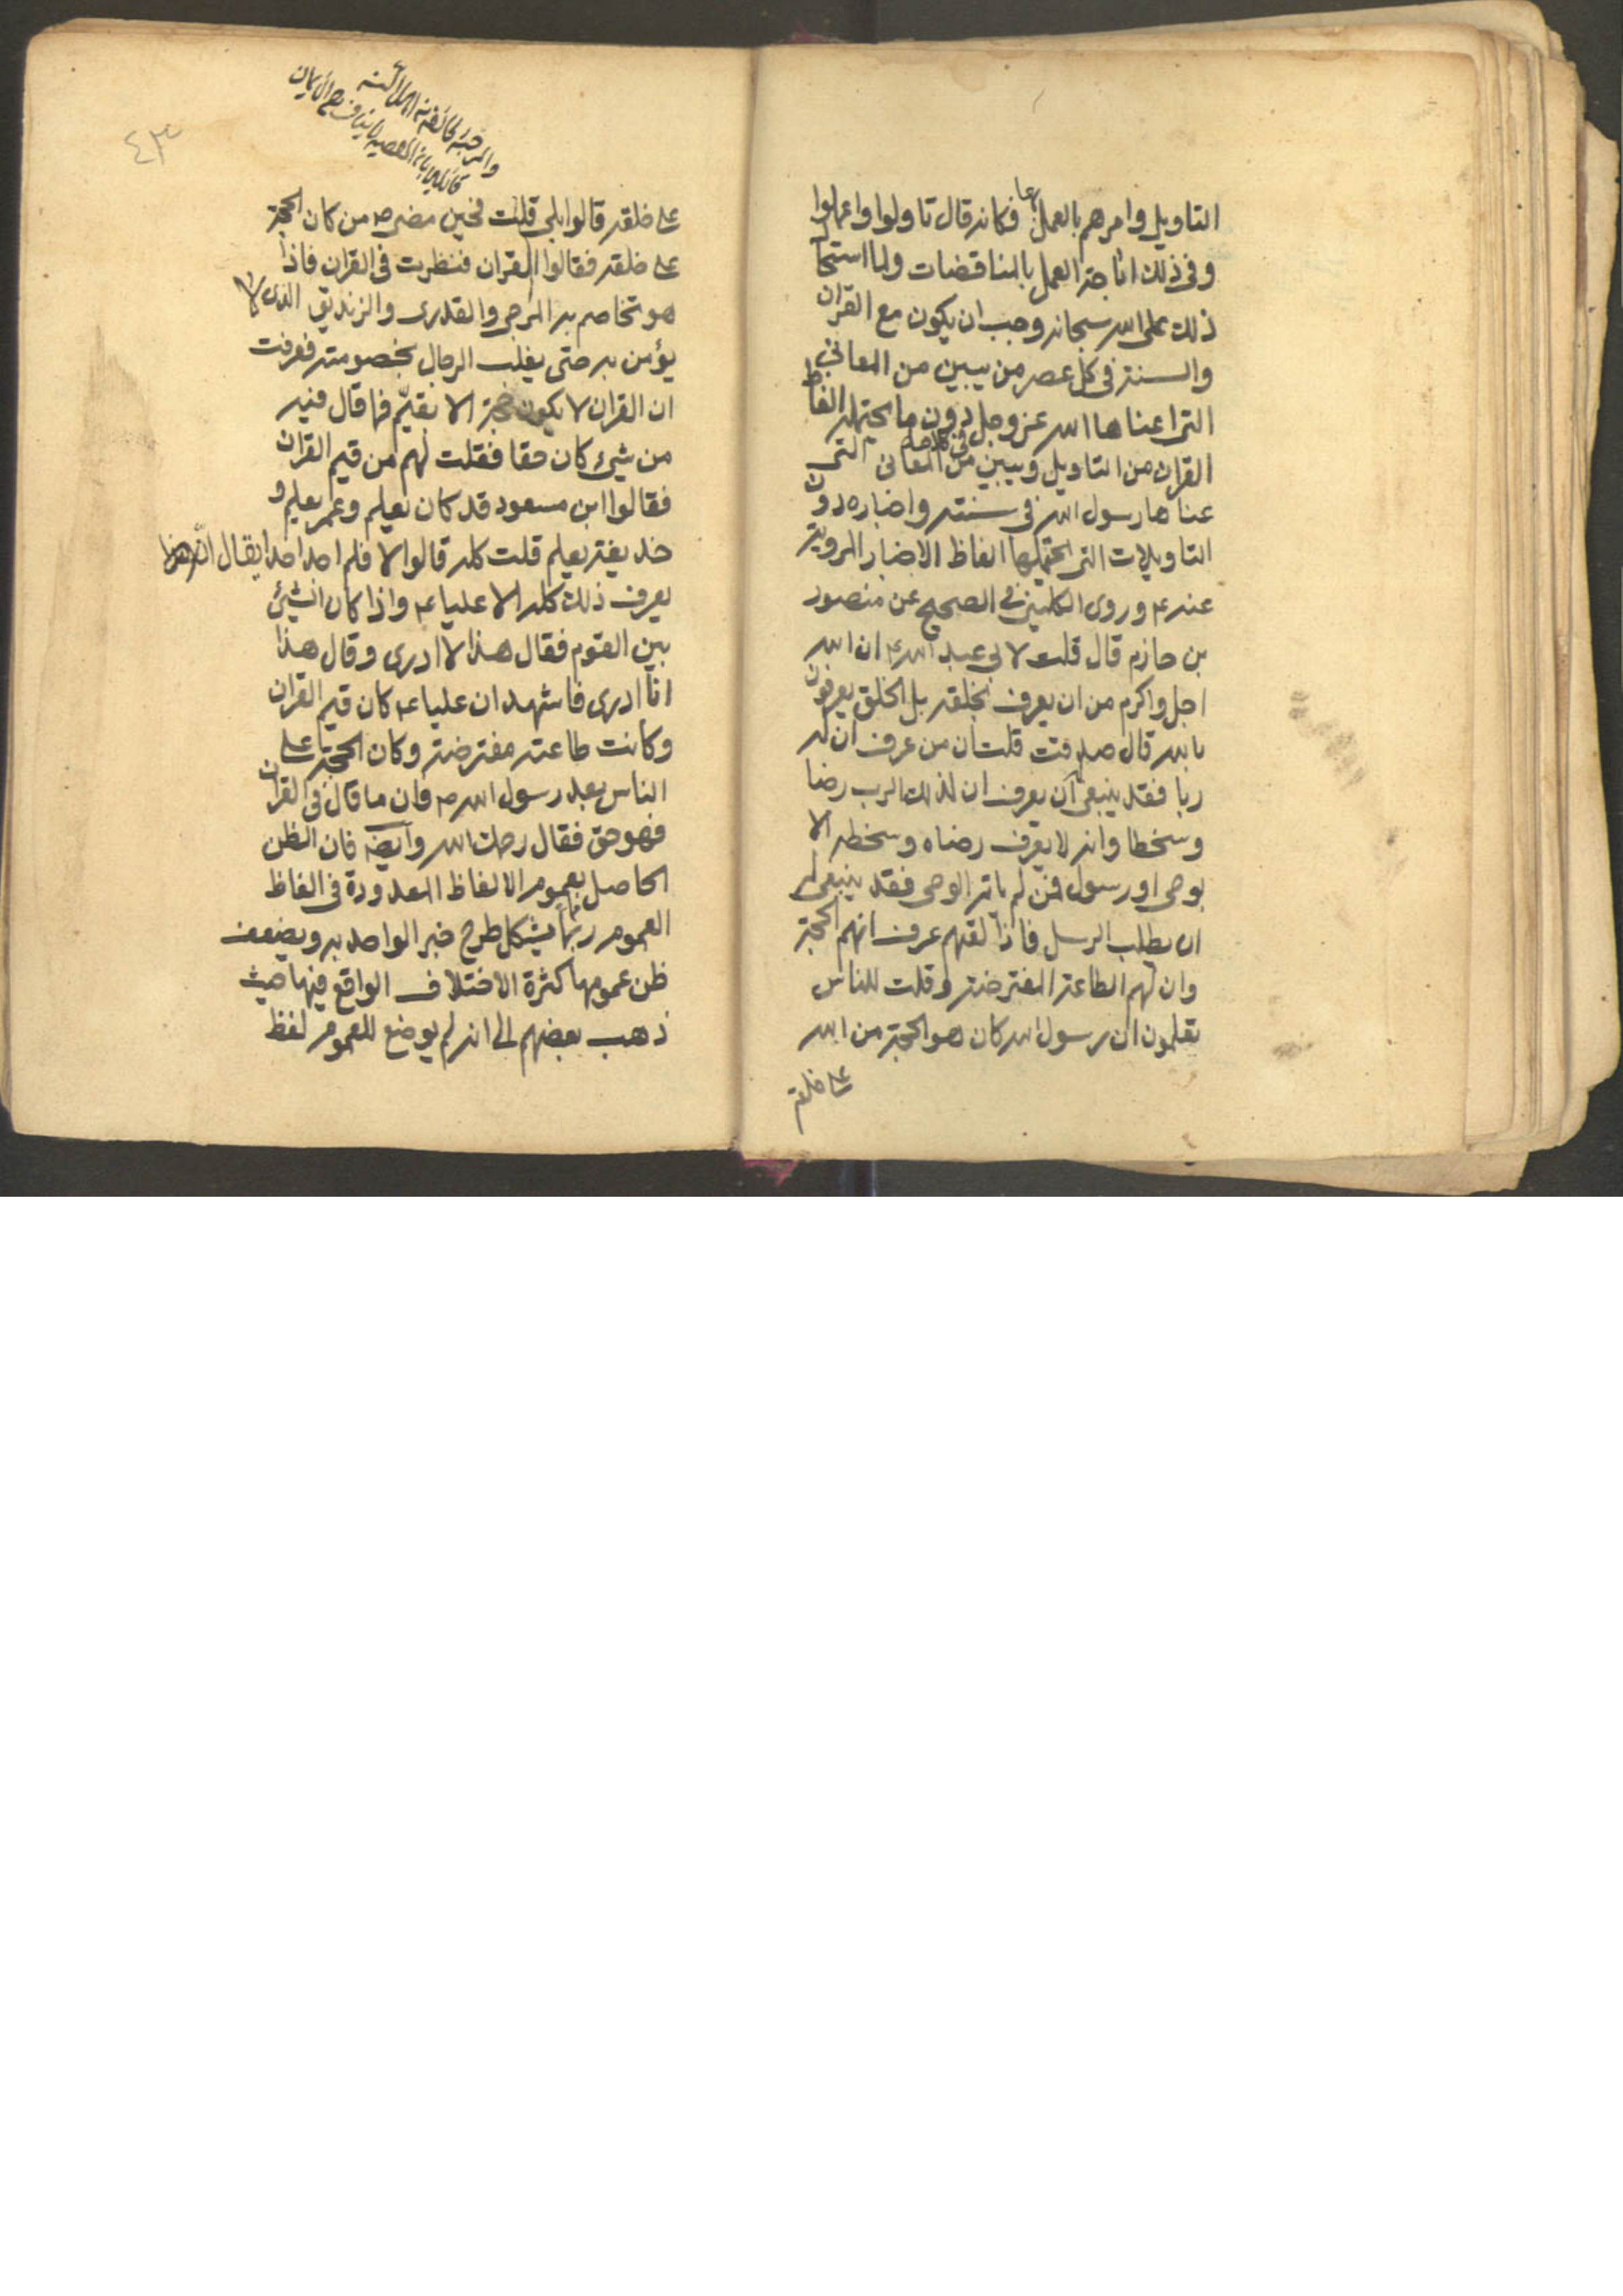 التاويل وامرهم بالعمل بها فكانه قال تاولوا واعملوا
وفى ذلك اباحة العمل بالمناقضات ولما استحا
ذلك على الله سبحانه وجب ان يكون مع القران
والسنة فى كل عصر من يبين من المعانى
التى عناها الله عز وجل فى كلامه دون ما يحتمله الفاظ
القران من التاويل ويبين من المعانى التى
عناها رسول الله فى سننه واخباره دون
التاويلات التى يحتملها الفاظ الاخبار المروية
عنه ع وروى الكلينى فى الصحيح عن منصور
بن حازم قال قلت لابى عبد الله ع ان الله
اجل واكرم من ان يعرف بخلقه بل الخلق يعرفون
بالله قال صدقت قلت ان من عرف ان له
ربا فقد ينبغى ان يعرف ان لذلك الرب رضا
وسخطا وانه لا يعرف رضاه وسخطه الا
بوحى او رسول فمن لم ياته الوحى فقد ينبغى له
ان يطلب الرسل فاذا لقيهم عرف انهم الحجة
وان لهم الطاعة المفترضة وقلت للناس
تعلمون ان رسول الله كان هو الحجة من الله
على خلقه
٤٣
والمرجئة طائفة
على خلقه قالوا بلى قلت فحين مضى ص من كان الحجة
على خلقه فقالوا القران فنظرت فى القران فاذا
هو تخاصم به المرجى والقدرى والزنديق الذى لا
يؤمن به حتى يغلب الرجال بخصومته فعرفت
ان القران لا يكون حجة الا بقيّم فما قال فيه
من شىء كان حقا فقلت لهم من قيم القران
فقالوا ابن مسعود قد كان يعلم وعمر يعلم و
حذيفة يعلم قلت كله قالوا لا فلم اجد احدا يقال انّه
يعرف ذلك كله الا عليا ع واذا كان الشىء
بين القوم فقال هذا لا ادرى وقال هذا
انا ادرى فاشهد ان عليا ع كان قيم القران
وكانت طاعته مفترضة وكان الحجة على
الناس بعد رسول الله ص وان ما قال فى القران
فهو حق فقال رحمك الله وايضا فان الظن
الحاصل بعموم الالفاظ المعدودة فى الفاظ
العموم ربما يشكل طرح خبر الواحد به ويضعف
ظن عمومها كثرة الاختلاف الواقع فيها حيث
ذهب بعضهم الى انه لم يوضع للعموم لفظ